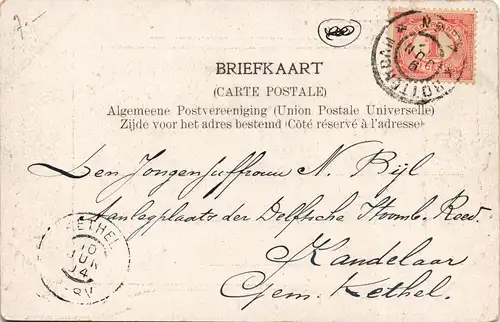 7.-
BRIEFKAART
(CARTE POSTALE)
Algemeene Postvereeniging (Union Postale Universelle)
Zijde voor het adres bestemd (Côté réservé à l'adresse)
ROTTERDAM
Den Jongenjuffrouw N. Bijl
Aanlegplaats der Delftsche Stoomb. Reed.
Kandelaar
Gem. Kethel.
KETHEL
10
JUN
04